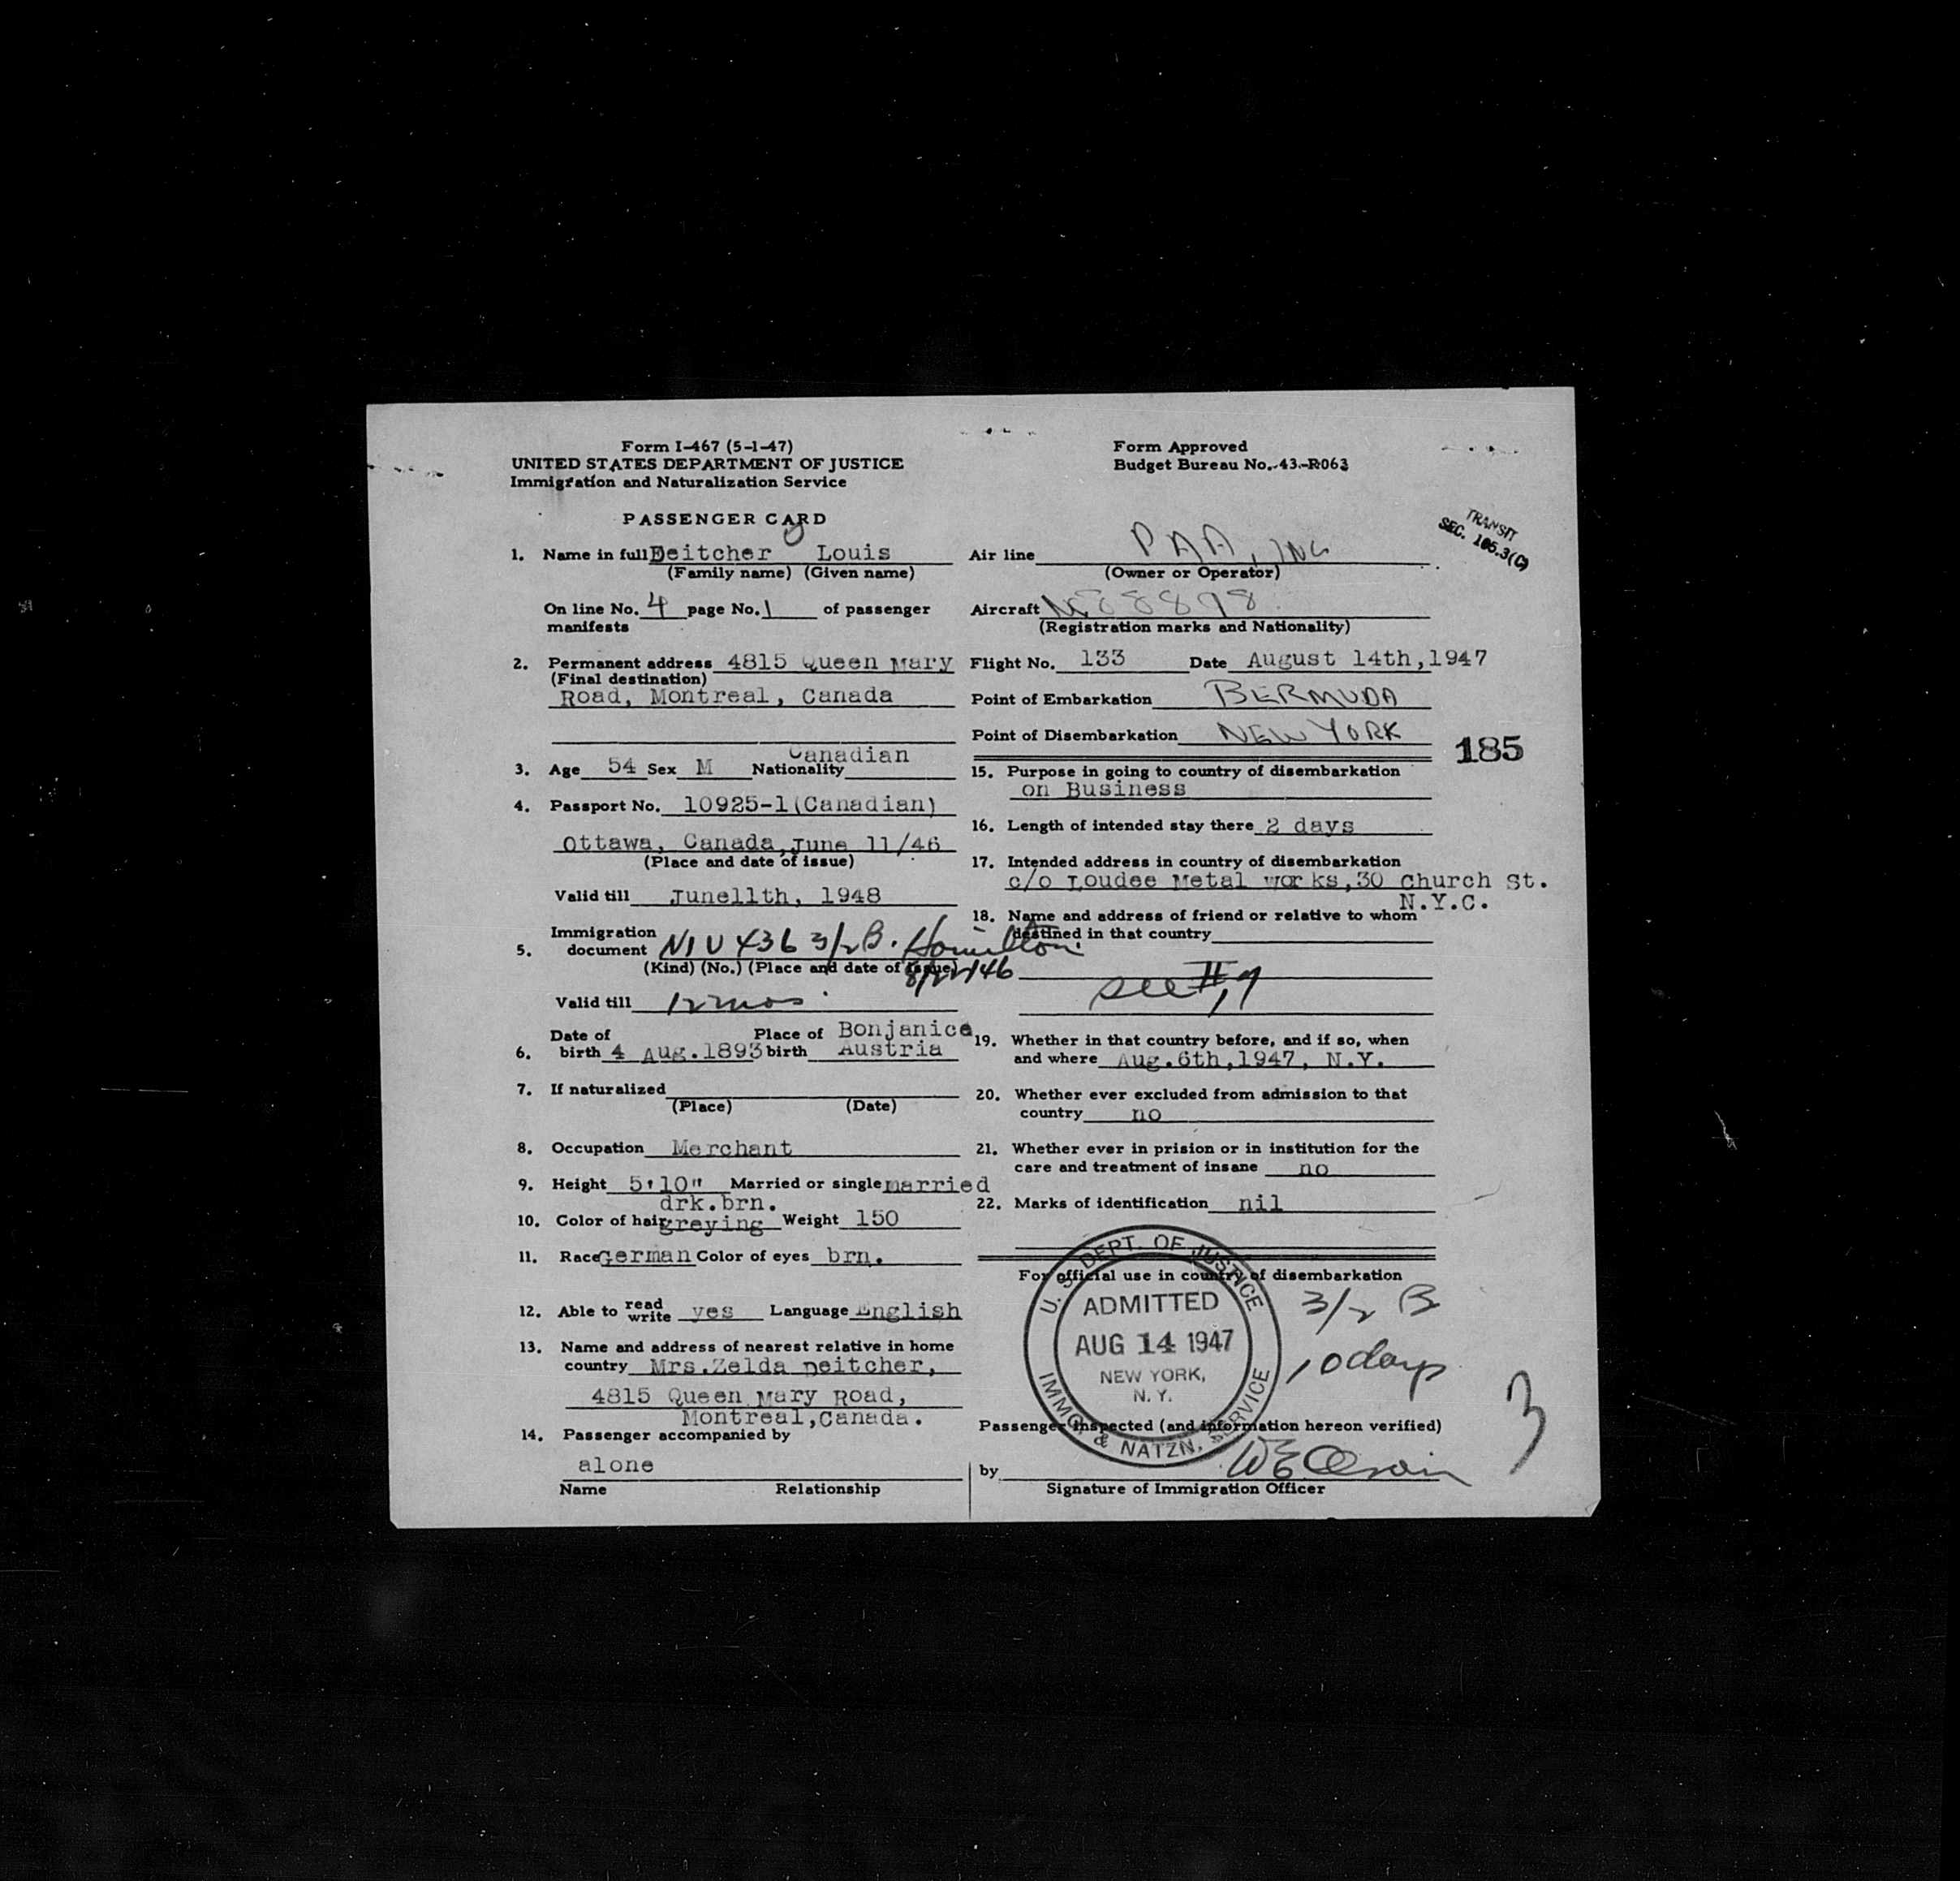 Form I-467 (5-1-47)
UNITED STATES DEPARTMENT OF JUSTICE
Immigration and Naturalization Service
PASSENGER CARD
Form Approved
Budget Bureau No. 43-R063
TRANSIT
SEC. 105.3(C)
1. Name in full Deitcher Louis
(Family name) (Given name)
On line No. 4 page No. 1 of passenger
manifests
2. Permanent address 4815 Queen Mary
(Final destination)
Road, Montreal, Canada
3. Age 54 Sex M Nationality Canadian
4. Passport No. 10925-1(Canadian)
Ottawa, Canada, June 11/46
(Place and date of issue)
Valid till June11th, 1948
5. Immigration
document NIV 436 3/2 B. Hamilton
(Kind) (No.) (Place and date of issue)
Valid till 12 mos.
6. Date of birth 4 Aug. 1893 Place of birth Bonjanice
Austria
7. If naturalized
(Place) (Date)
8. Occupation Merchant
9. Height 5'10" Married or single married
10. Color of hair drk.brn. greying Weight 150
11. Race German Color of eyes brn.
12. Able to read write yes Language English
13. Name and address of nearest relative in home
country Mrs.Zelda Deitcher,
4815 Queen Mary Road,
Montreal,Canada.
14. Passenger accompanied by
alone
Name Relationship
Air line PAA, INC
(Owner or Operator)
Aircraft NC88898
(Registration marks and Nationality)
Flight No. 133 Date August 14th,1947
Point of Embarkation BERMUDA
Point of Disembarkation NEW YORK
185
15. Purpose in going to country of disembarkation
on Business
16. Length of intended stay there 2 days
17. Intended address in country of disembarkation
c/o Loudee Metal Works,30 Church St.
N.Y.C.
18. Name and address of friend or relative to whom
destined in that country
see #17
19. Whether in that country before, and if so, when
and where Aug.6th,1947, N.Y.
20. Whether ever excluded from admission to that
country no
21. Whether ever in prision or in institution for the
care and treatment of insane no
22. Marks of identification nil
For official use in country of disembarkation
U. S. DEPT. OF JUSTICE
ADMITTED
AUG 14 1947
NEW YORK,
N. Y.
IMMG. & NATZN. SERVICE
3/2 B
10 days
3
Passenger inspected (and information hereon verified)
by
Signature of Immigration Officer